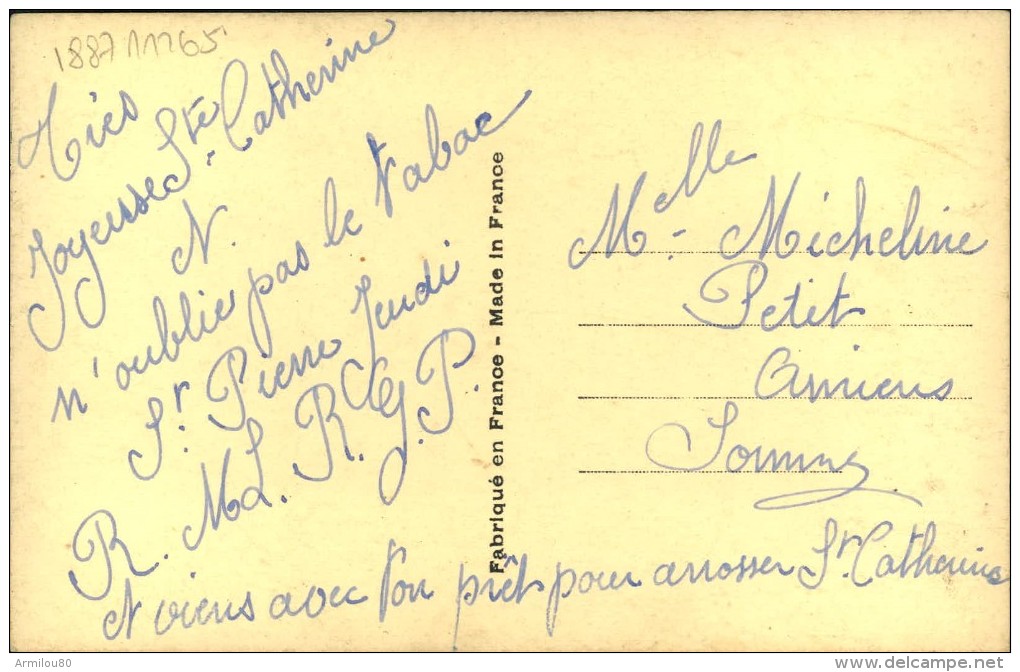 1887 11265
Très
Joyeusse Ste Catherine
N.
n'oublie pas le Tabac
St. Pierre Jeudi
R. ML. R. G.P.
et viens avec ton prêt pour arrosser St. Catherine
Fabriqué en France - Made in France
Melle - Micheline
Petit
Amiens
Somme
Armilou80
www.delcampe.net